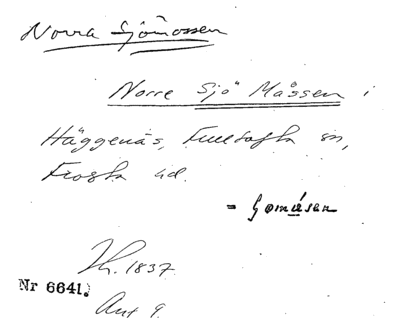 Norra Sjömossen
Norre Sjö Måssen i
Häggenäs, Fulltofta sn,
Frosta hd.
= Gomåsen
Th. 1837
Nr 6641.
Ant 9.